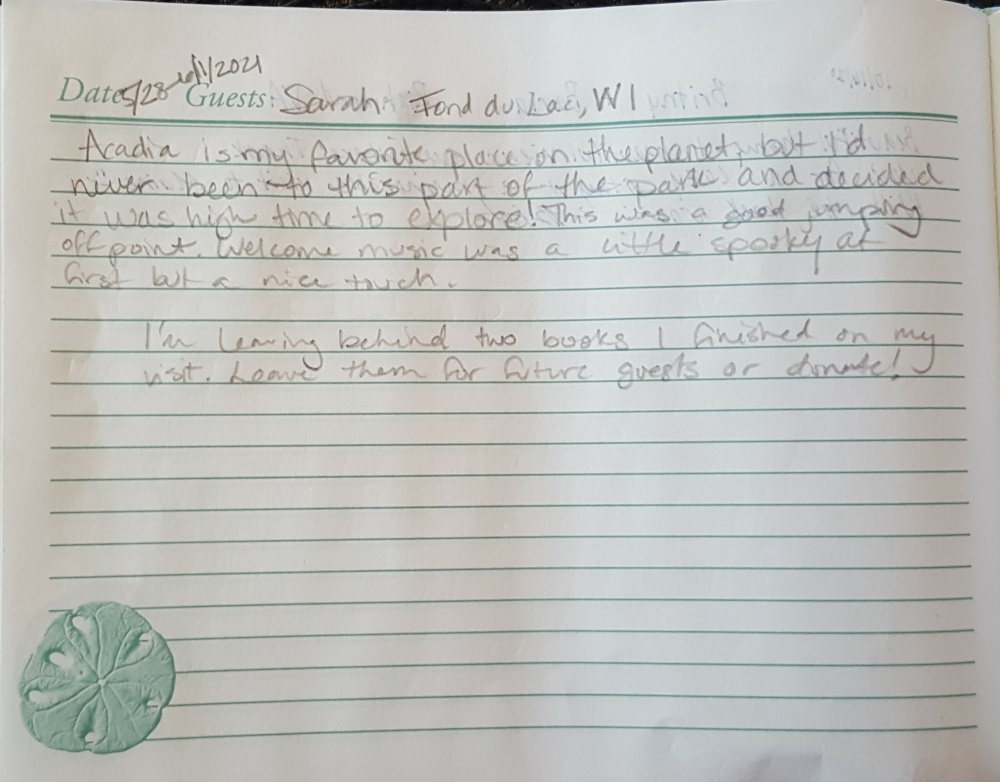 Date: 5/28-6/1/2021 Guests: Sarah Fond du Lac, WI
Acadia is my favorite place on the planet, but I'd
never been to this part of the park and decided
it was high time to explore! This was a good jumping
off point. Welcome music was a little spooky at
first but a nice touch.
I'm leaving behind two books I finished on my
visit. Leave them for future guests or donate!